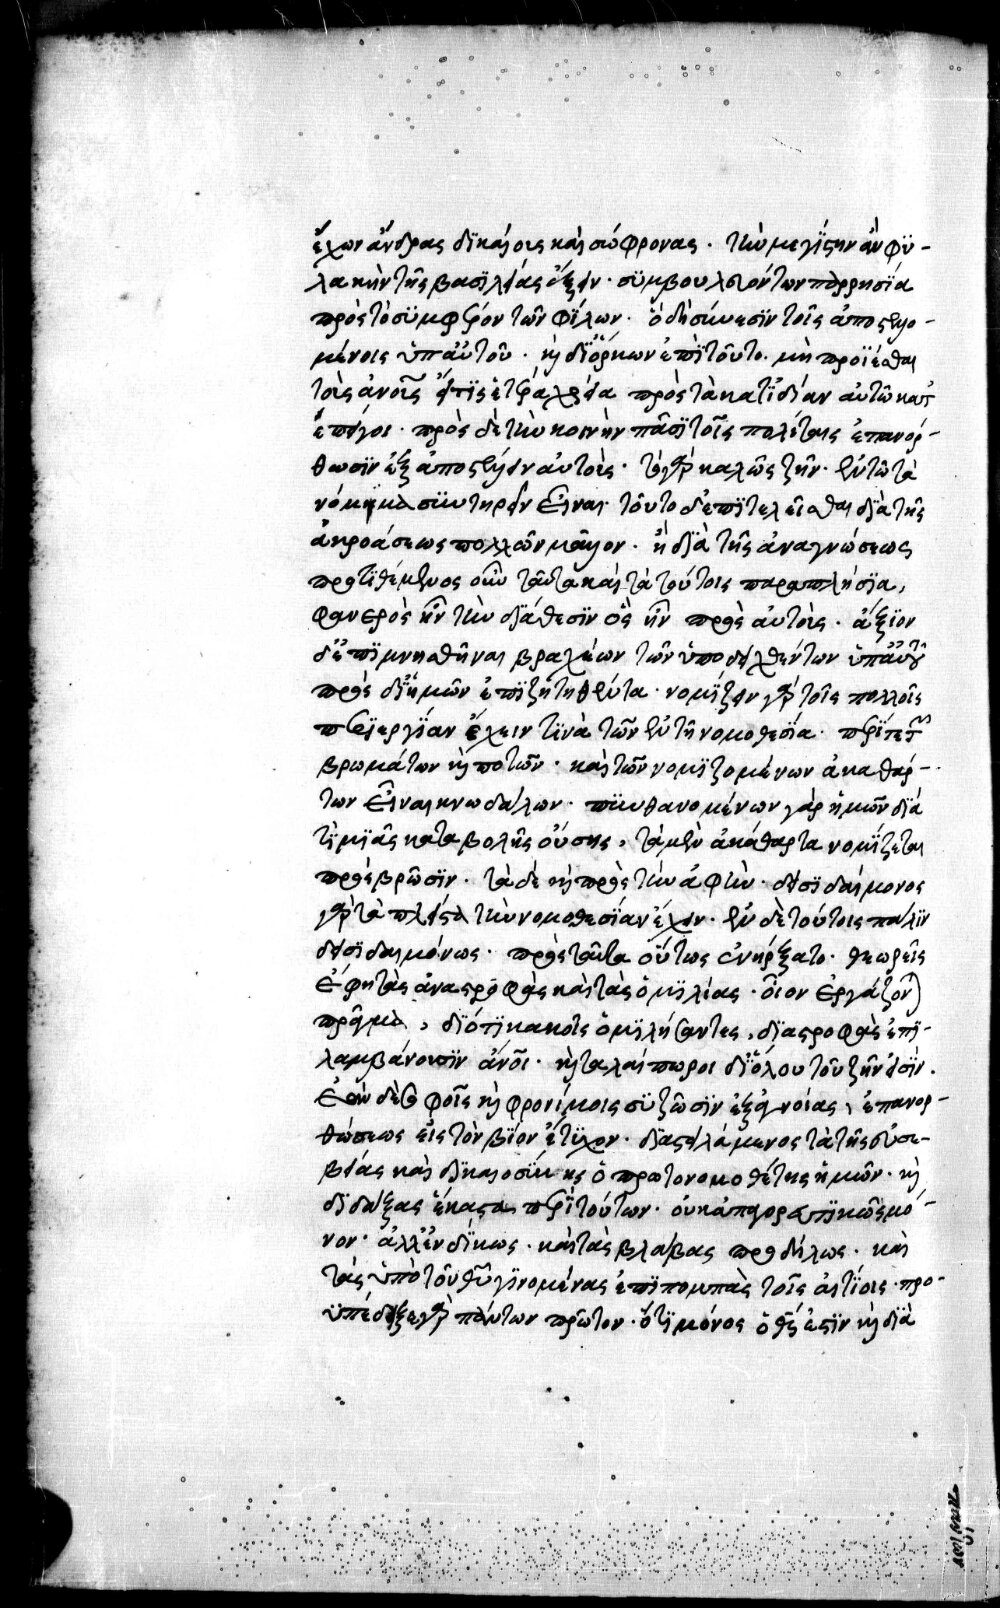 ἔχων ἄνδρας δϊκαίους καὶ σώφρονας · τὴν μεγίστην ἂν φϋ-
λακὴν τῆς βασϊλείας ἕξειν · συμβουλευόντων παρρησία
πρὸς τὸ συμφέρον τῶν φίλων · ὃ δὴ σύνεσϊν τοῖς ἀποστελλο-
μένοις ὑπ' αὐτοῦ · κ δϊόρκων ἐπϊ τοῦτο · μὴ προΐεσθαι
τοὺς ἀνο͂υς εἴ τις ἑτέρα χρεία πρὸς τὰ κατϊδίαν αὐτῶ κατ
ἐπείγοι · πρὸς δὲ τὴν κοινὴν πᾶσϊ τοῖς πολίταις ἐπανόρ-
θωσϊν ἐξαποστέλλειν αὐτούς · τὸ γὰρ καλῶς ζῆν · ἐν τῶ τὰ
νόμιμα συντηρεῖν εἶναι · τοῦτο δ' ἐπϊτελεῖσθαι διὰ τῆς
ἀκροάσεως πολλῶ μᾶλλον · ἢ διὰ τῆς ἀναγνώσεως
προτϊθέμενος οὖν ταῦτα καὶ τὰ τούτοις παραπλήσϊα,
φανερὸς ἦν τὴν διάθεσιν ὃς ἦν πρὸς αὐτούς · ἄξϊον
δ' ἐπϊμνησθῆναι βραχέων τῶν ὑποδειχθέντων ὑπ' αὐτοῦ
πρὸς δϊ' ἡμῶν ἐπϊζητηθέντα · νομίζειν γὰρ τοῖς πολλοῖς
περϊεργΐαν ἔχειν τϊνὰ τῶν ἐν τῆ νομοθεσΐα · περΐ τε τῶν
βρωμάτων κ ποτῶν · καὶ τῶν νομϊζομένων ἀκαθάρ-
των εἶναι κνωδάλων · πυνθανομένων γὰρ ἡμῶν διὰ
τΐ μϊᾶς καταβολῆς οὔσης, τὰ μὲν ἀκάθαρτα νομίζεται
πρὸς βρῶσϊν · τὰ δὲ κ πρὸς τὴν ἁφήν · δεισιδαιμόνως
γὰρ τὰ πλεῖστα τὴν νομοθεσίαν ἔχειν · ἐν δὲ τούτοις πάλϊν
δεισιδαιμόνως · πρὸς ταῦτα οὕτως ἐνήρξατο · θεωρεῖς
ἔφη τὰς ἀναστροφὰς καὶ τὰς ὁμϊλίας · οἷον ἐργάζον
πρᾶγμα, διότϊ κακοῖς ὁμιλήσαντες, διαστροφὰς ἐπϊ-
λαμβάνουσϊν ἄνο͂ι · κ ταλαίπωροι δι' ὅλου τοῦ ζῆν εἰσΐν ·
ἐὰν δὲ σοφοῖς κ φρονίμοις συζῶσϊν ἐξ ἀγνοίας, ἐπανορ-
θώσεως εἰς τὸν βϊον ἔτυχον · διαστειλάμενος τὰ τῆς εὐσε-
βείας καὶ δικαιοσύνης ὁ πρωτονομοθέτης ἡμῶν · κ
διδάξας ἕκαστα περὶ τούτων · οὐκ ἀπαγορευτϊκῶς μό-
νον · ἀλλ' ἐνδΐκως · καὶ τὰς βλάβας προδήλως · καὶ
τὰς ὑπὸ τοῦ θῦ γϊνομένας ἐπϊπομπὰς τοῖς αἰτίοις · προ-
ϋπέδειξε γὰρ πάντων πρῶτον · ὅτϊ μόνος ὁ θς ἐστϊν κ διὰ